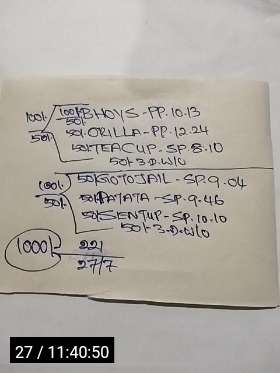 100/- 100/- BHOYS - PP. 10.13
50/-
50/- 50/- ORILLA - PP. 12.24
50/- TEACUP - SP. 8.10
50/- 3.D.W/O
100/- 50/- GOTOJAIL - SP. 9.04
50/- 50/- PATATA - SP. 9.46
50/- SENTUP - SP. 10.10
50/- 3.D.W/O
1000/- 221
27/7
27 / 11:40:50